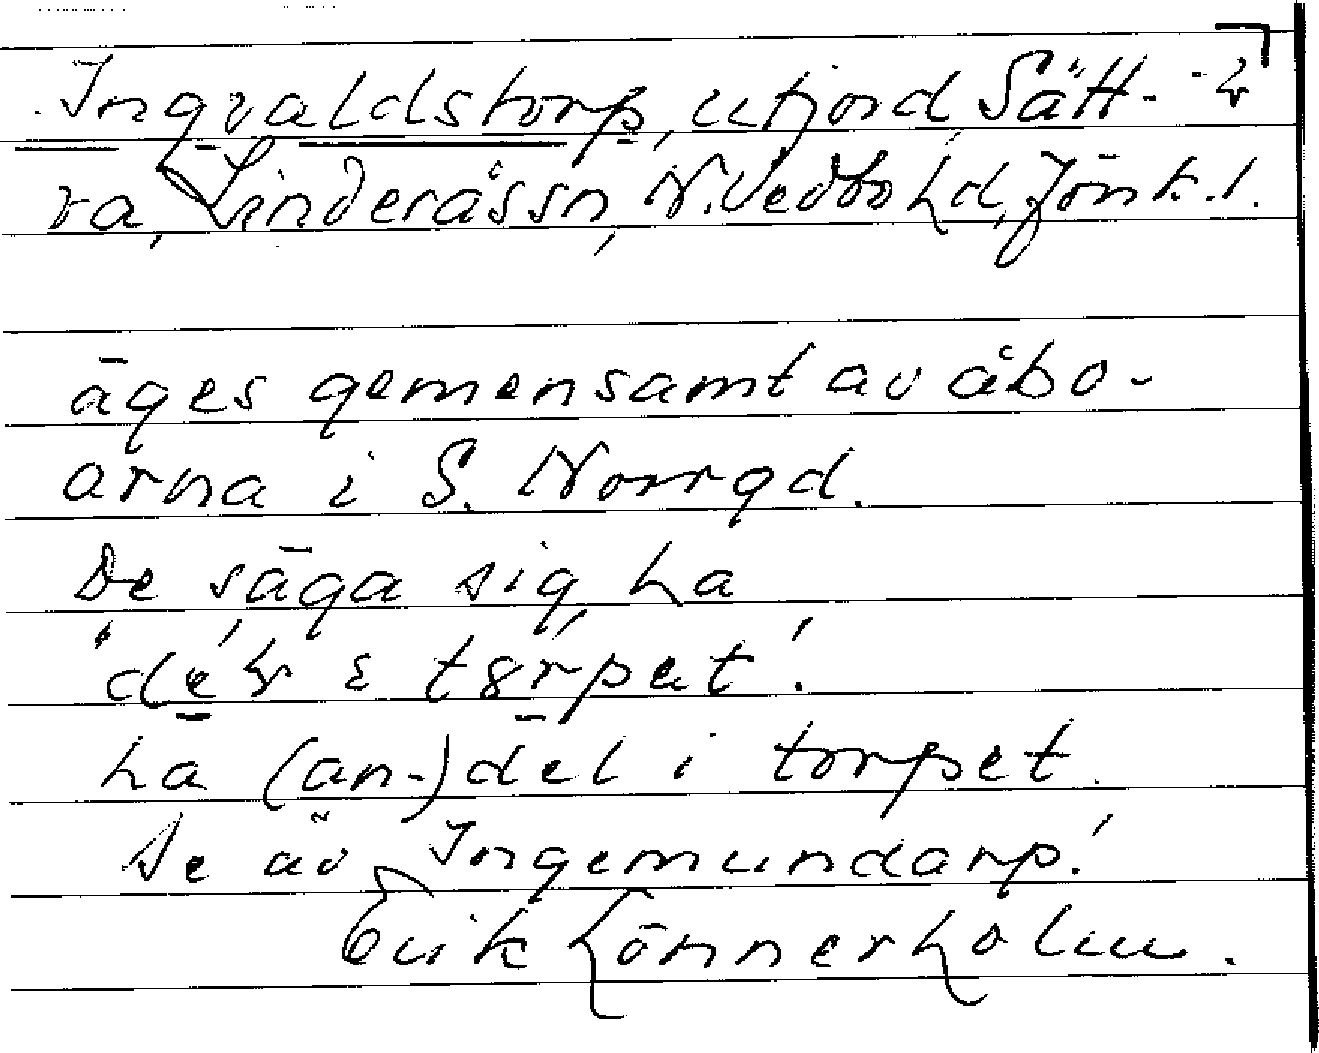 Ingvaldstorp, utjord Sätt-
ra, Linderås sn, N. Vedbo hd, Jönk. l.
äges gemensamt av åbo-
arna i S. Norrgd.
De säga sig ha
ha (an-)del i torpet.
De äv Ingemundarp!
Erik Lönnerholm.